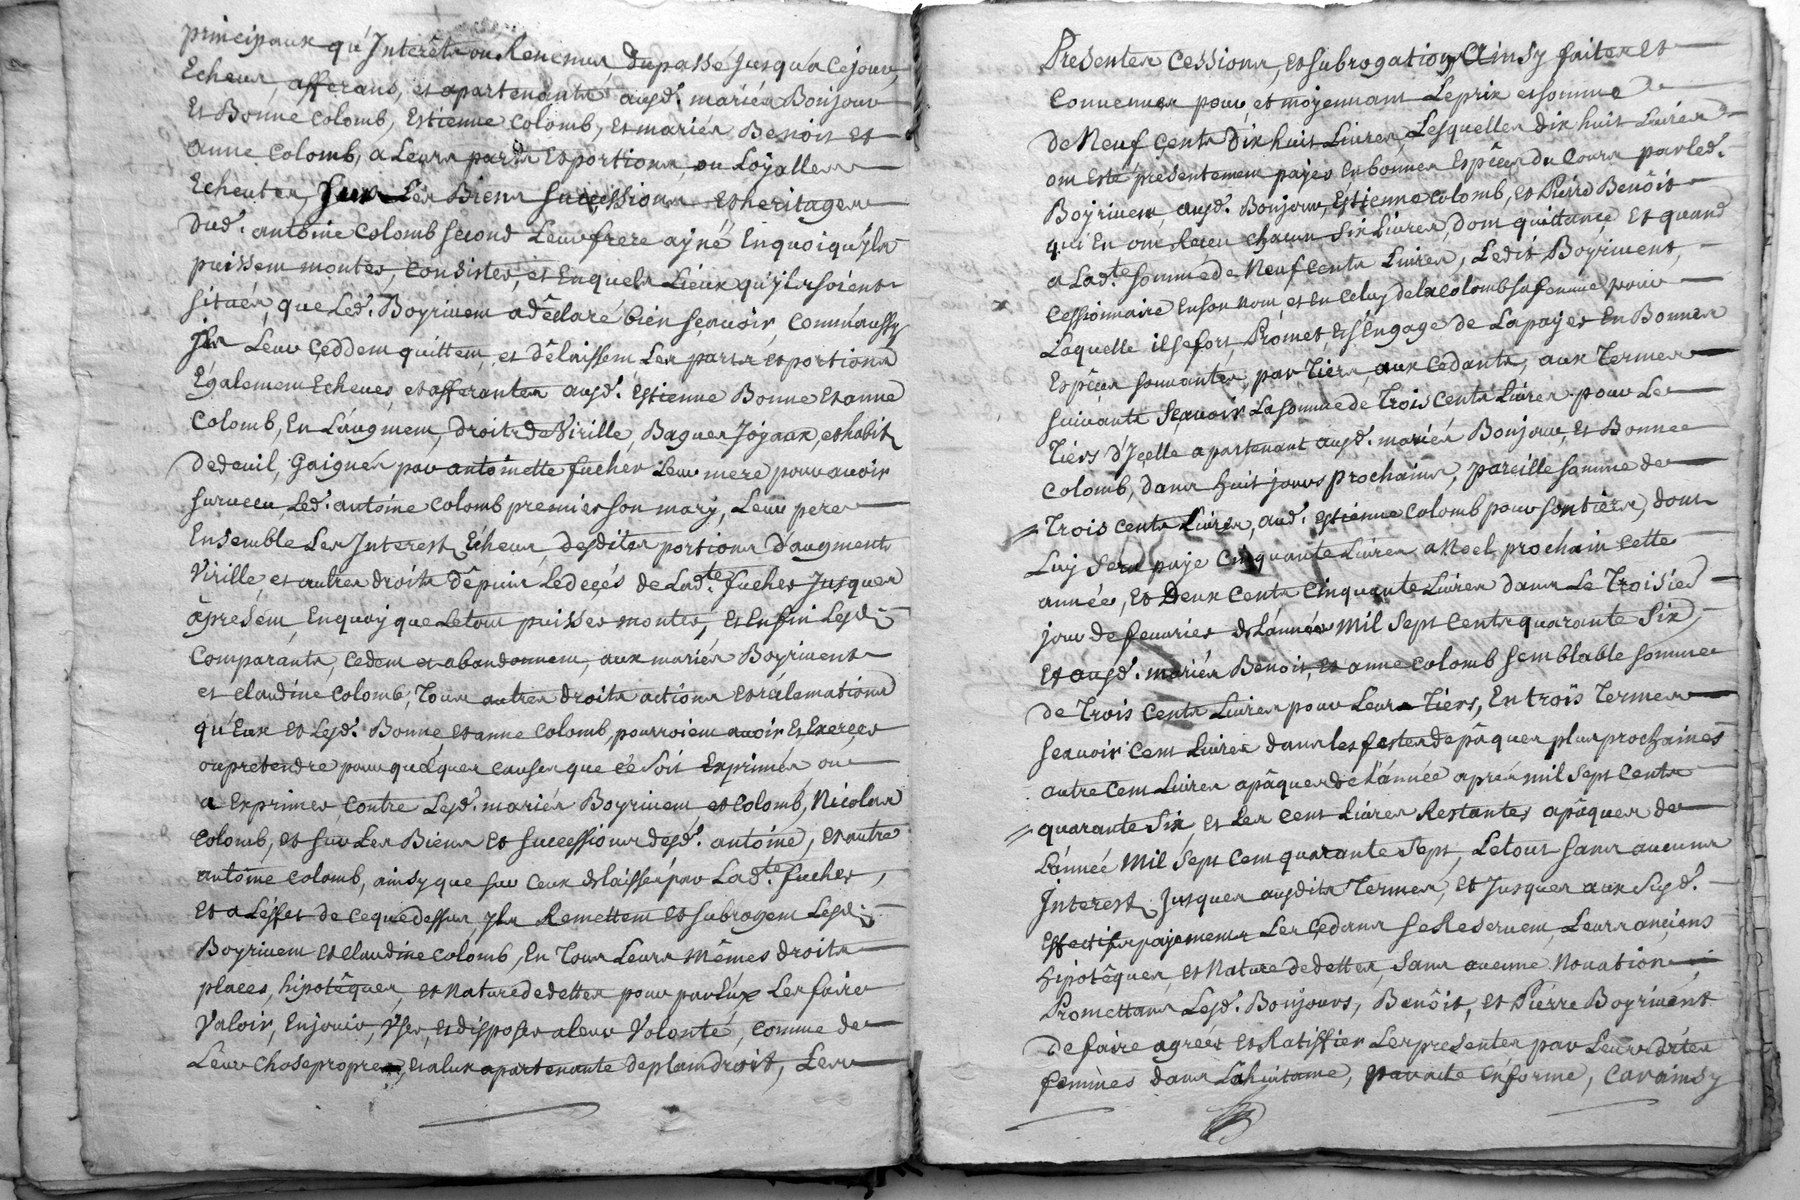 principaux qu'Interêts ou Revenus du passé Jusqu'a Cejour
Echeus, afferans, et apartenants ausd. mariés Bonjour
Et Bonne Colomb, Estienne Colomb, et mariés Benoit et
anne Colomb, a Leurs parts et portions, ou Loyalles
Echeutes, sur Les Biens successions et heritages
Dud. antoine Colomb second Leur frere ayné En quoi qu'yls
puissem montes, consistes, et En quels Lieux qu'yls soient
situés, que Led. Boyrivem a dêclaré bien sçavoir, Comm'aussy
Ils Leur çeddem quittem, et dêlaissem Les parts et portions
Egalemem Echeues, et afferantes ausd. Estienne Bonne et anne
Colomb, En L'augmem, droits de Virille, Bagues Joyaux, et habit
de deuil, Gaignés par antoinette fucher Leur mere pour avoir
surveeu Led. antoine Colomb premier son mary, Leur pere
Ensemble Les Interest Echeus desdites portions d'augments
Virille, et autres droits dêpuis Le deçés de Lad.te fuches Jusques
àpresem, En quoy que Le tout puisses montes, et Enfin Lesd.
Comparants, Cedem et abandonnem, aux mariés Boyrivent
et claudine Colomb, Tous autres droits actions et reclemations
qu'Eux et Lesd. Bonne, et anne Colomb, pourroiem avoir et Exerçes
ou pretendre pour quelques causes que cè soit Exprimés ou
a Exprimes, Contre Lesd. mariés Boyrivem et Colomb, Nicolas
Colomb, et sur Les Biens et successions desd. antoine, et autre
antoine Colomb, ainsy que sur Ceux dèlaissés par Lad.te fuches,
et a L'effet de ce que dessus, yls Remettem et subrogem Lesd.
Boyrivem et claudine Colomb, En Tous Leurs mêmes droits
places, hipotêques, et nature de dettes pour par Eux Les faire
Valoir, Enjouir, Vses, et disposes a leur Volonté, Comme de
Leur chose propre, et a Eux apartenante de plain droit, Les
Presentes Cessions, et subrogation, Ainsy faites et
Convenues pour, et moyennant Le prix et somme
de Neuf Cents Dix huit Livres, Lesquelles dix huit Livres
ont Esté presentement payés En bonnes Espêces du Cours par Led.
Boyrivem ausd. Bonjour, Estienne Colomb, et Pierre Benôit
qui En ont Reçeu chacun six Livres, dont quittance, et quand
a Lad.te somme de Neuf Cents Livres, Ledit Boyrivent,
Cessionnaire En son nom et En Celuy de la Colomb sa femme pour
Laquelle il se fort, Promet, Et s'Engage de La payes En Bonnes
Espêces sonnantes, par Tiers, aux Cedants, aux Termes
suivants Sçavoir La somme de Trois Cents Livres pour Le
Tiers d'Içelle apartenant ausd. mariés Bonjour, et Bonne
Colomb, dans huit jours prochains, pareille somme de
Trois Cents Livres, aud. Estienne Colomb pour son tiers, dont
Luy sera payé Cinquante Livres a Noel prochain Cette
année, et Deux Cents Cinquante Livres dans Le Troisies
jour de fevries de L'année mil sept Cents quarante Six,
Et ausd. mariés Benoit, et anne Colomb semblable somme
de Trois Cents Livres pour Leurs Tiers, En trois Termes
sçavoir Cent Livres dans les festes de pâques plus prochaines
autre Cem Livres a pâques de L'année aprés mil sept Cents
quarante Six, et Les Cent Livres Restantes a pâques de
L'année Mil Sept Cem quarante Sept, Letout sans aucuns
Interest Jusques ausdits Termes, et Jusques aux susd.
Effectifs payements Les Çedans se Reservem, Leurs anciens
Hipotêques, et Nature de dettes, sans aucune Novation,
Promettans Lesd. Bonjours, Benôit, et Pierre Boyrivent
de faire agrées et Ratiffier Les presentes par Leurs dites
femmes dans La huitaine, par acte En forme, Car ainsy